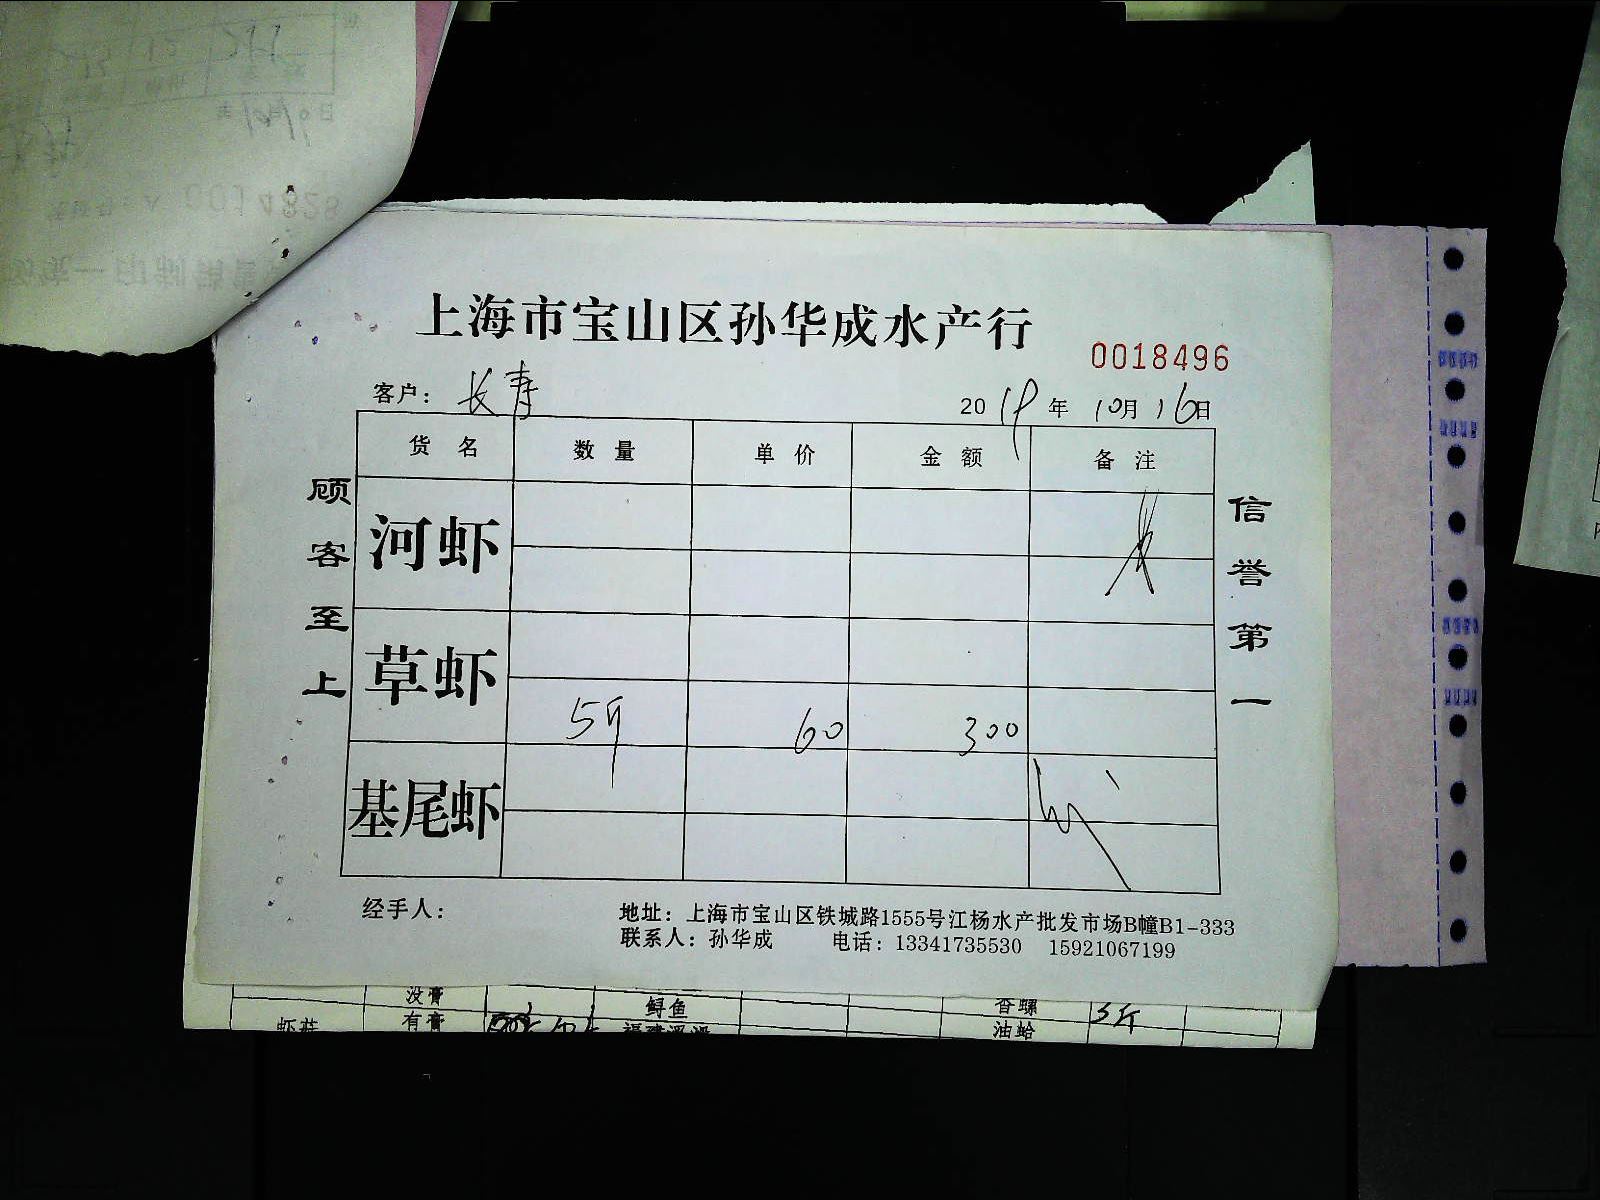 上海市宝山区孙华成水产行
0018496
客户: 长青
2019年 10月 16日
货名 数量 单价 金额 备注
河虾
草虾
5斤 60 300
基尾虾
顾客至上
信誉第一
经手人:
地址: 上海市宝山区铁城路1555号江杨水产批发市场B幢B1-333
联系人: 孙华成 电话: 13341735530 15921067199
没膏 鲟鱼 香螺 3斤
虾菇 有膏 油蛤
0014828